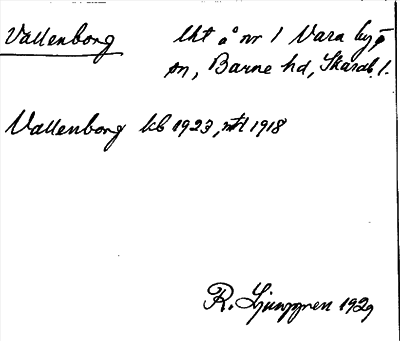 Vallenborg Uht å nr 1 Vara by o
sn, Barne hd, Skarab. l.
Vallenborg kb 1923, mtl 1918
R. Ljunggren 1929